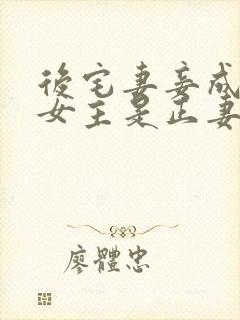 後宅妻妾成
女主是正妻
廖體忠